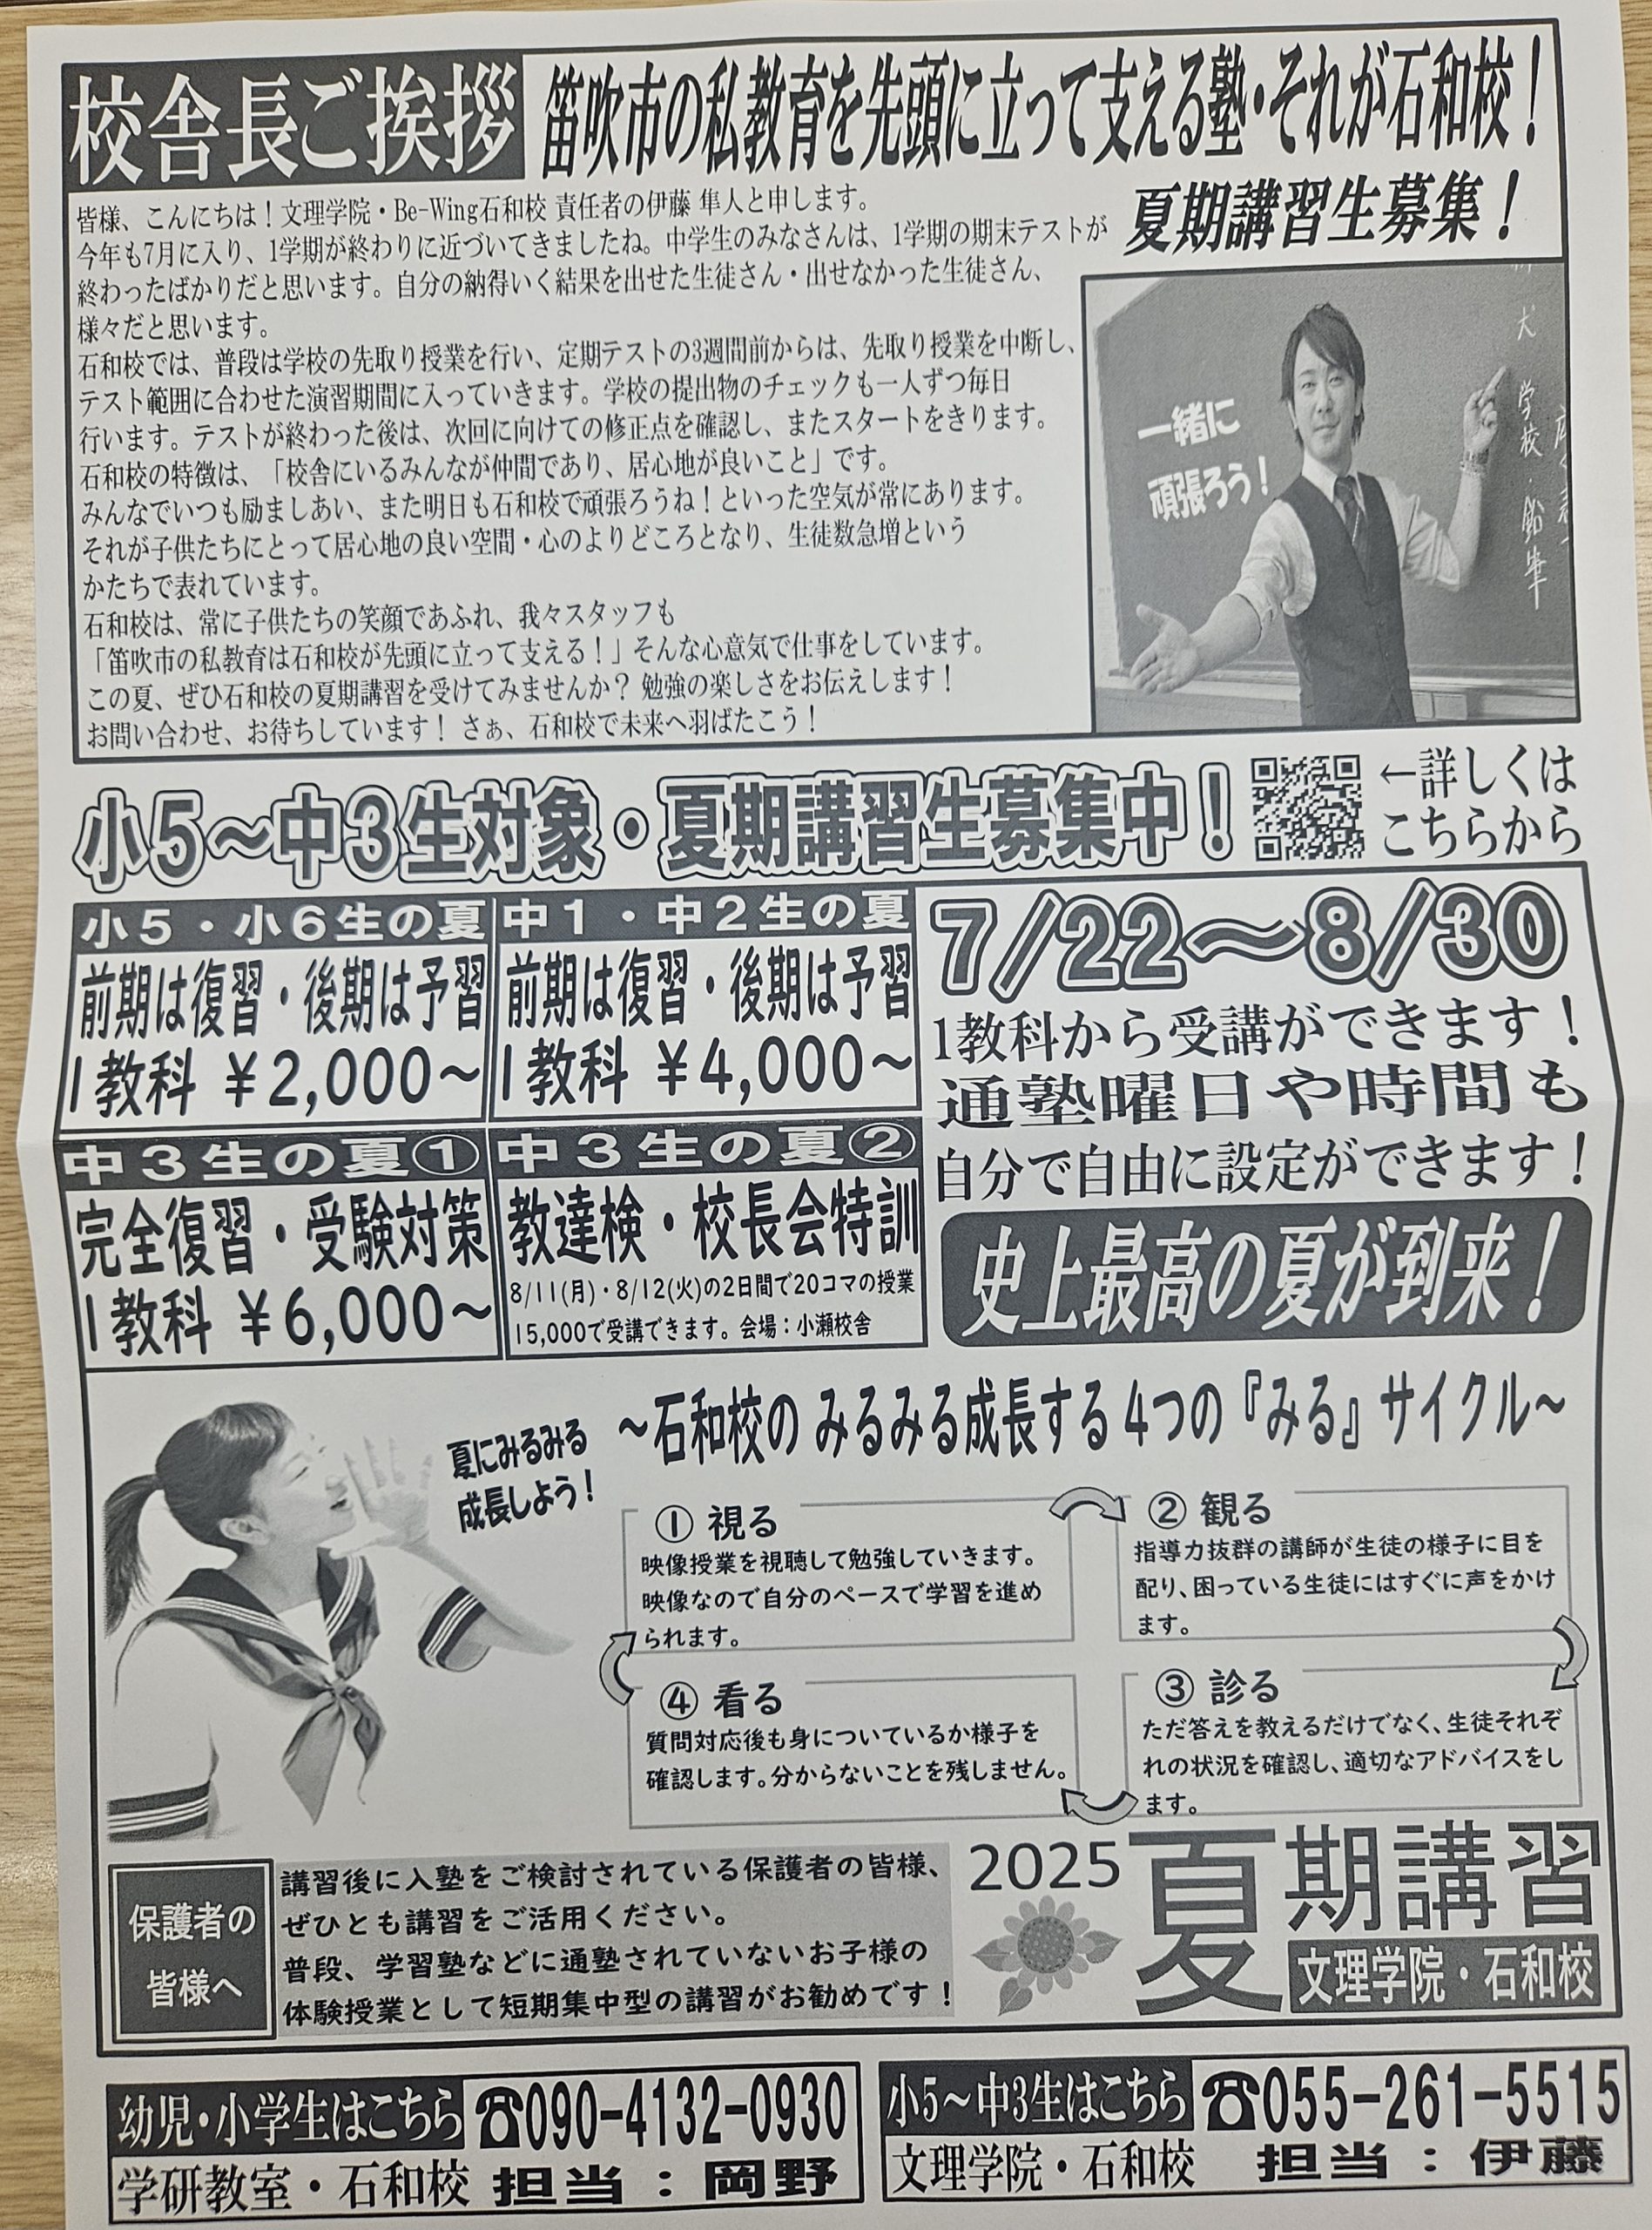 校舎長ご挨拶
笛吹市の私教育を先頭に立って支える塾・それが石和校！
夏期講習生募集！
皆様、こんにちは！文理学院・Be-Wing石和校 責任者の伊藤 隼人と申します。
今年も7月に入り、1学期が終わりに近づいてきましたね。中学生のみなさんは、1学期の期末テストが
終わったばかりだと思います。自分の納得いく結果を出せた生徒さん・出せなかった生徒さん、
様々だと思います。
石和校では、普段は学校の先取り授業を行い、定期テストの3週間前からは、先取り授業を中断し、
テスト範囲に合わせた演習期間に入っていきます。学校の提出物のチェックも一人ずつ毎日
行います。テストが終わった後は、次回に向けての修正点を確認し、またスタートをきります。
石和校の特徴は、「校舎にいるみんなが仲間であり、居心地が良いこと」です。
みんなでいつも励ましあい、また明日も石和校で頑張ろうね！といった空気が常にあります。
それが子供たちにとって居心地の良い空間・心のよりどころとなり、生徒数急増という
かたちで表れています。
石和校は、常に子供たちの笑顔であふれ、我々スタッフも
「笛吹市の私教育は石和校が先頭に立って支える！」そんな心意気で仕事をしています。
この夏、ぜひ石和校の夏期講習を受けてみませんか？ 勉強の楽しさをお伝えします！
お問い合わせ、お待ちしています！ さぁ、石和校で未来へ羽ばたこう！
一緒に
頑張ろう！
犬
学校・鉛筆
小5～中3生対象・夏期講習生募集中！
←詳しくは
こちらから
小5・小6生の夏
前期は復習・後期は予習
1教科 ￥2,000～
中1・中2生の夏
前期は復習・後期は予習
1教科 ￥4,000～
中3生の夏①
完全復習・受験対策
1教科 ￥6,000～
中3生の夏②
教達検・校長会特訓
8/11(月)・8/12(火)の2日間で20コマの授業
15,000で受講できます。会場：小瀬校舎
7/22～8/30
1教科から受講ができます！
通塾曜日や時間も
自分で自由に設定ができます！
史上最高の夏が到来！
夏にみるみる
成長しよう！
～石和校の みるみる成長する4つの『みる』サイクル～
① 視る
映像授業を視聴して勉強していきます。
映像なので自分のペースで学習を進め
られます。
② 観る
指導力抜群の講師が生徒の様子に目を
配り、困っている生徒にはすぐに声をかけ
ます。
④ 看る
質問対応後も身についているか様子を
確認します。分からないことを残しません。
③ 診る
ただ答えを教えるだけでなく、生徒それぞ
れの状況を確認し、適切なアドバイスをし
ます。
保護者の
皆様へ
講習後に入塾をご検討されている保護者の皆様、
ぜひとも講習をご活用ください。
普段、学習塾などに通塾されていないお子様の
体験授業として短期集中型の講習がお勧めです！
2025
夏期講習
文理学院・石和校
幼児・小学生はこちら
☎090-4132-0930
学研教室・石和校 担当：岡野
小5～中3生はこちら
☎055-261-5515
文理学院・石和校 担当：伊藤